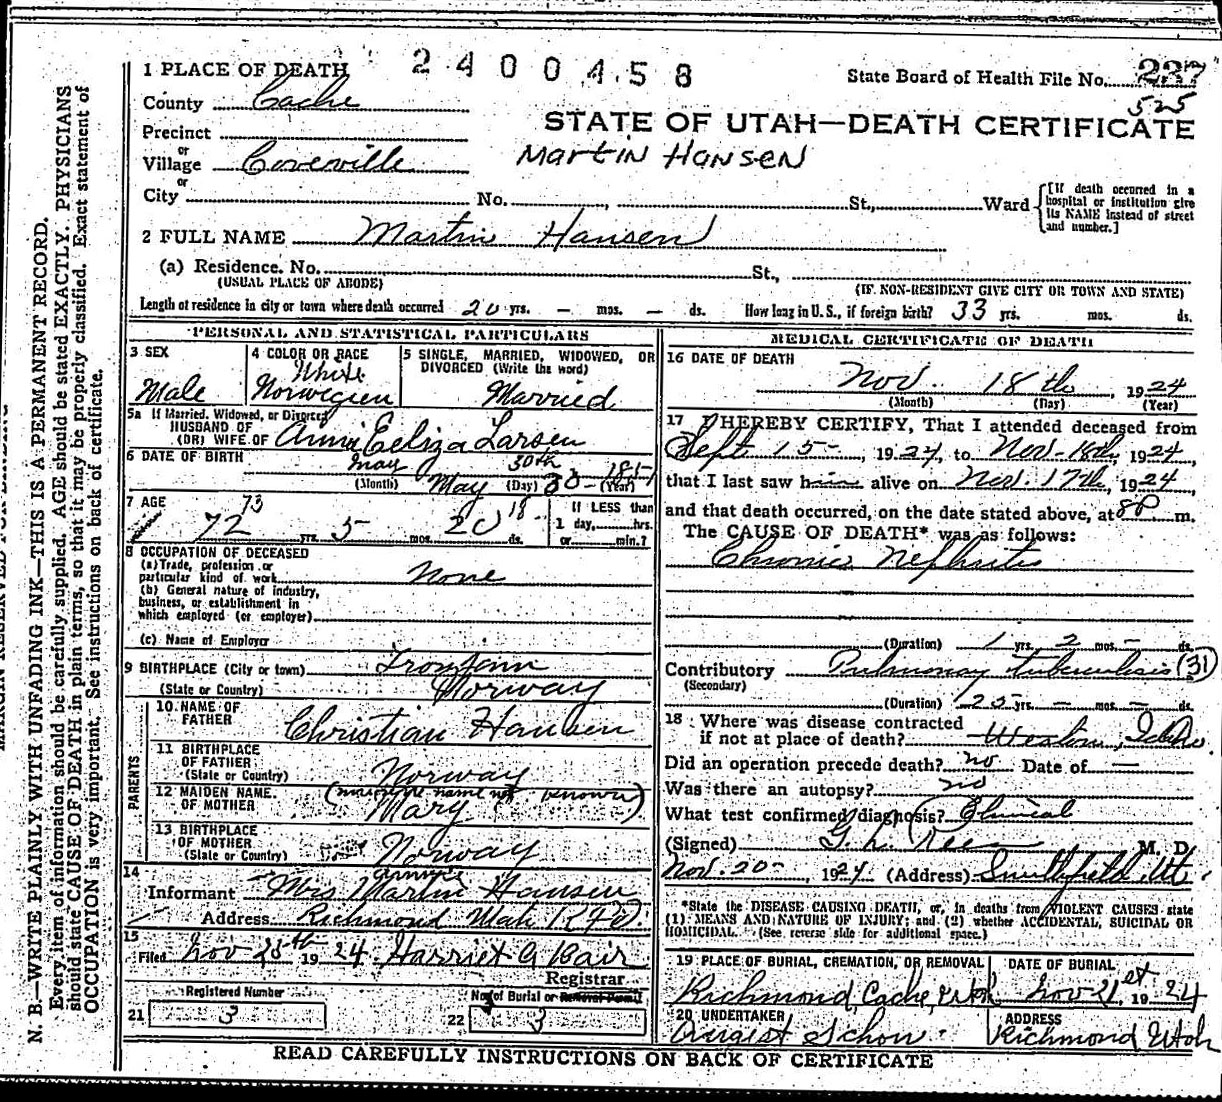 2400458
State Board of Health File No. 237
525
1 PLACE OF DEATH
County Cache
Precinct
or
Village Coveville
or
City No. , St., Ward
[If death occurred in a hospital or institution give its NAME instead of street and number.]
STATE OF UTAH—DEATH CERTIFICATE
Martin Hansen
2 FULL NAME Martin Hansen
(a) Residence. No. St.,
(USUAL PLACE OF ABODE) (IF NON-RESIDENT GIVE CITY OR TOWN AND STATE)
Length of residence in city or town where death occurred 20 yrs. — mos. — ds. How long in U.S., if foreign birth? 33 yrs. mos. ds.
PERSONAL AND STATISTICAL PARTICULARS
3 SEX
Male
4 COLOR OR RACE
White
Norwegien
5 SINGLE, MARRIED, WIDOWED, OR DIVORCED (Write the word)
Married
5a If Married, Widowed, or Divorced
HUSBAND OF
(OR) WIFE OF Anni Eeliza Larsen
6 DATE OF BIRTH
May 30th 1851
(Month) May (Day) 30 - (Year)
7 AGE
73 18
72 yrs. 5 mos. 20 ds.
If LESS than
1 day, hrs.
or min.?
8 OCCUPATION OF DECEASED
(a) Trade, profession or
particular kind of work None
(b) General nature of industry,
business, or establishment in
which employed (or employer)
(c) Name of Employer
9 BIRTHPLACE (City or town)
(State or Country) Norway
PARENTS
10 NAME OF
FATHER Christian Hansen
11 BIRTHPLACE
OF FATHER
(State or Country) Norway
12 MAIDEN NAME
OF MOTHER (name not known)
Mary
13 BIRTHPLACE
OF MOTHER
(State or Country) Norway
14
Informant Mrs Martin Hansen
Address Richmond Utah RFD
15
Filed Nov 25th 1924 Harriet G Bair
Registrar
Registered Number
21 3
No. of Burial or Removal Permit
22 3
MEDICAL CERTIFICATE OF DEATH
16 DATE OF DEATH
Nov. 18th 1924
(Month) (Day) (Year)
17 I HEREBY CERTIFY, That I attended deceased from
Sept 15 - , 1924, to Nov - 18th, 1924,
that I last saw him alive on Nov. 17th, 1924,
and that death occurred, on the date stated above, at 8 P m.
The CAUSE OF DEATH* was as follows:
Chronic Nephritis
(Duration) 1 yrs. 2 mos. — ds.
Contributory Pulmonary tuberculosis (31)
(Secondary)
(Duration) 25 yrs. — mos. — ds.
18 Where was disease contracted
if not at place of death? Weston, Idaho
Did an operation precede death? no Date of —
Was there an autopsy? no
What test confirmed diagnosis? Clinical
(Signed) G. L. Rees M. D.
Nov. 20 - , 1924 (Address) Smithfield, Ut.
*State the DISEASE CAUSING DEATH, or, in deaths from VIOLENT CAUSES state
(1) MEANS AND NATURE OF INJURY; and (2) whether ACCIDENTAL, SUICIDAL OR
HOMICIDAL. (See reverse side for additional space.)
19 PLACE OF BURIAL, CREMATION, OR REMOVAL
Richmond, Cache, Utah
DATE OF BURIAL
Nov 21 st, 1924
20 UNDERTAKER
August Schow
ADDRESS
Richmond Utah
READ CAREFULLY INSTRUCTIONS ON BACK OF CERTIFICATE
MARGIN RESERVED FOR BINDING
N. B.—WRITE PLAINLY WITH UNFADING INK—THIS IS A PERMANENT RECORD.
Every item of information should be carefully supplied. AGE should be stated EXACTLY. PHYSICIANS
should state CAUSE OF DEATH in plain terms, so that it may be properly classified. Exact statement of
OCCUPATION is very important. See instructions on back of certificate.